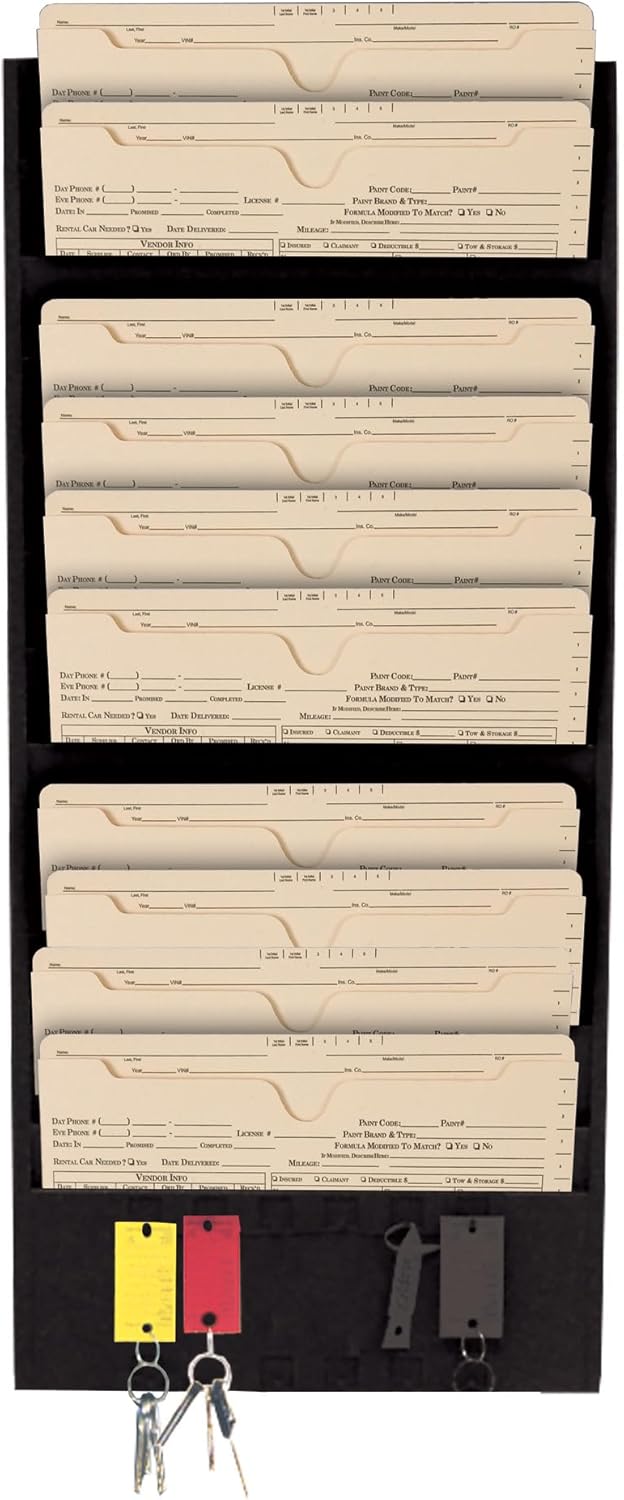 1st Initial Last Name 1st Initial First Name 3 4 5
Name: RO #
Last, First Make/Model
Year VIN# Ins. Co.
1
Day Phone # ( ) - Paint Code: Paint#
1st Initial Last Name 1st Initial First Name 3 4 5
Name: RO #
Last, First Make/Model
Year VIN# Ins. Co.
1
2
Day Phone # ( ) - Paint Code: Paint#
Eve Phone # ( ) - License # Paint Brand & Type:
3
Date: In Promised Completed Formula Modified To Match? ☐ Yes ☐ No
If Modified, Describe Here:
Rental Car Needed? ☐ Yes Date Delivered: Mileage: 4
Vendor Info ☐ Insured ☐ Claimant ☐ Deductible $ ☐ Tow & Storage $
Date Supplier Contact Ord By Promised Rec'd
1st Initial Last Name 1st Initial First Name 3 4 5
Name: RO #
Last, First Make/Model
Year VIN# Ins. Co.
1
2
Day Phone # ( ) - Paint Code: Paint#
1st Initial Last Name 1st Initial First Name 3 4 5
Name: RO #
Last, First Make/Model
Year VIN# Ins. Co.
1
2
Day Phone # ( ) - Paint Code: Paint#
1st Initial Last Name 1st Initial First Name 3 4 5
Name: RO #
Last, First Make/Model
Year VIN# Ins. Co.
1
2
Day Phone # ( ) - Paint Code: Paint#
1st Initial Last Name 1st Initial First Name 3 4 5
Name: RO #
Last, First Make/Model
Year VIN# Ins. Co.
1
2
Day Phone # ( ) - Paint Code: Paint#
Eve Phone # ( ) - License # Paint Brand & Type:
3
Date: In Promised Completed Formula Modified To Match? ☐ Yes ☐ No
If Modified, Describe Here:
Rental Car Needed? ☐ Yes Date Delivered: Mileage: 4
Vendor Info ☐ Insured ☐ Claimant ☐ Deductible $ ☐ Tow & Storage $
Date Supplier Contact Ord By Promised Rec'd
1st Initial Last Name 1st Initial First Name 3 4 5
Name: RO #
Last, First Make/Model
Year VIN# Ins. Co.
1
2
Day Phone # ( ) - Paint Code: Paint#
1st Initial Last Name 1st Initial First Name 3 4 5
Name: RO #
Last, First Make/Model
Year VIN# Ins. Co.
1
2
1st Initial Last Name 1st Initial First Name 3 4 5
Name: RO #
Last, First Make/Model
Year VIN# Ins. Co.
1
2
Day Phone # ( ) - Paint Code: Paint#
1st Initial Last Name 1st Initial First Name 3 4 5
Name: RO #
Last, First Make/Model
Year VIN# Ins. Co.
1
2
Day Phone # ( ) - Paint Code: Paint#
Eve Phone # ( ) - License # Paint Brand & Type:
3
Date: In Promised Completed Formula Modified To Match? ☐ Yes ☐ No
If Modified, Describe Here:
Rental Car Needed? ☐ Yes Date Delivered: Mileage: 4
Vendor Info ☐ Insured ☐ Claimant ☐ Deductible $ ☐ Tow & Storage $
Date Supplier Contact Ord By Promised Rec'd